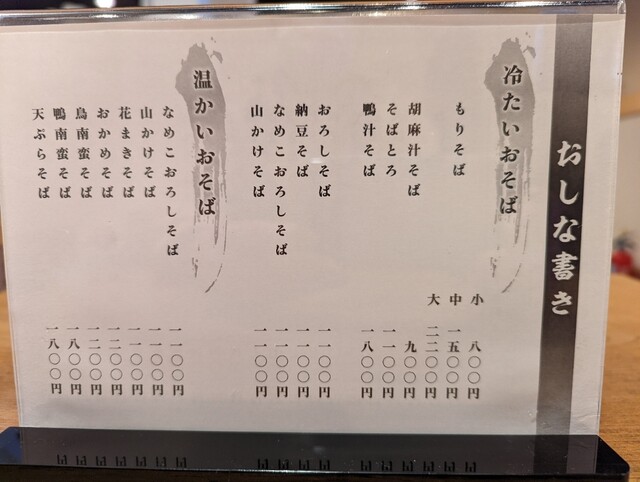 おしな書き
冷たいおそば
もりそば 小 八〇〇円
中 一五〇〇円
大 二二〇〇円
胡麻汁そば 九〇〇円
そばとろ 一一〇〇円
鴨汁そば 一八〇〇円
おろしそば 一一〇〇円
納豆そば 一一〇〇円
なめこおろしそば 一一〇〇円
山かけそば 一一〇〇円
温かいおそば
なめこおろしそば 一一〇〇円
山かけそば 一一〇〇円
花まきそば 一一〇〇円
おかめそば 一二〇〇円
鳥南蛮そば 一二〇〇円
鴨南蛮そば 一八〇〇円
天ぷらそば 一八〇〇円